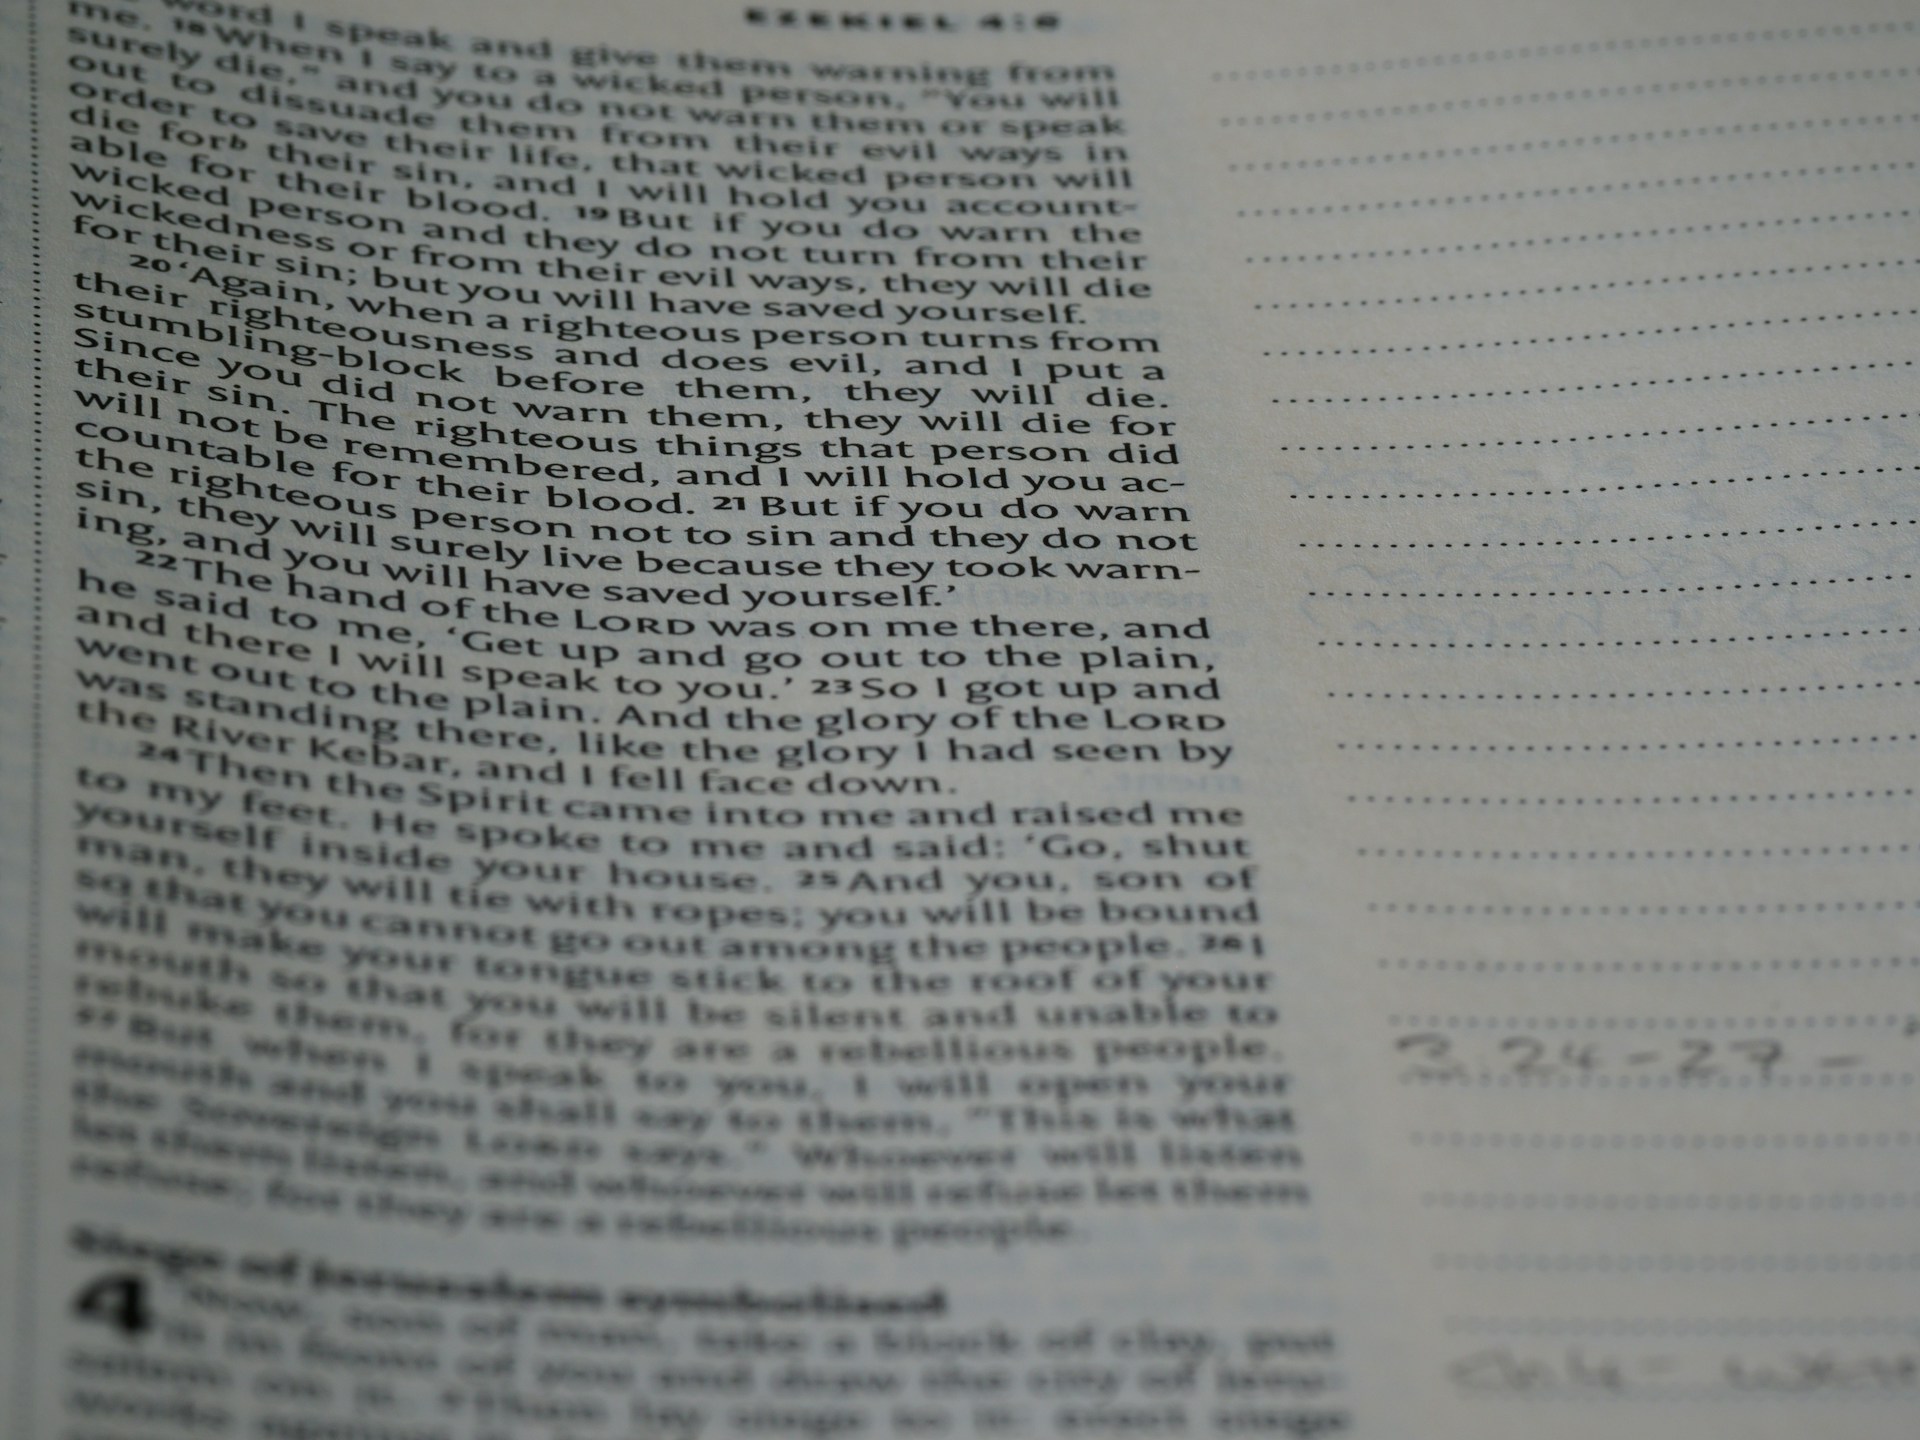 EZEKIEL 4:6
word I speak and give them warning from
me. 18 When I say to a wicked person, "You will
surely die," and you do not warn them or speak
out to dissuade them from their evil ways in
order to save their life, that wicked person will
die forb their sin, and I will hold you account-
able for their blood. 19 But if you do warn the
wicked person and they do not turn from their
wickedness or from their evil ways, they will die
for their sin; but you will have saved yourself.
20 ‘Again, when a righteous person turns from
their righteousness and does evil, and I put a
stumbling-block before them, they will die.
Since you did not warn them, they will die for
their sin. The righteous things that person did
will not be remembered, and I will hold you ac-
countable for their blood. 21 But if you do warn
the righteous person not to sin and they do not
sin, they will surely live because they took warn-
ing, and you will have saved yourself.’
22 The hand of the LORD was on me there, and
he said to me, ‘Get up and go out to the plain,
and there I will speak to you.’ 23 So I got up and
went out to the plain. And the glory of the LORD
was standing there, like the glory I had seen by
the River Kebar, and I fell face down.
24 Then the Spirit came into me and raised me
to my feet. He spoke to me and said: ‘Go, shut
yourself inside your house. 25 And you, son of
man, they will tie with ropes; you will be bound
so that you cannot go out among the people. 26 I
will make your tongue stick to the roof of your
mouth so that you will be silent and unable to
rebuke them, for they are a rebellious people.
27 But when I speak to you, I will open your
mouth and you shall say to them, "This is what
the Sovereign LORD says." Whoever will listen
let them listen, and whoever will refuse let them
refuse; for they are a rebellious people.
Siege of Jerusalem symbolised
4 ‘Now, son of man, take a block of clay, put
it in front of you and draw the city of Jeru-
salem on it. 2 Then lay siege to it: erect siege
24-27 -